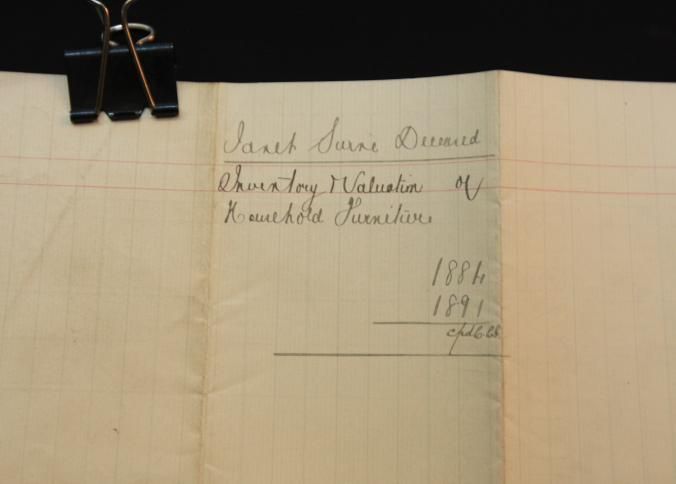 Janet Surne Deceased
Inventory & Valuation of
Household Furniture
1884
1891